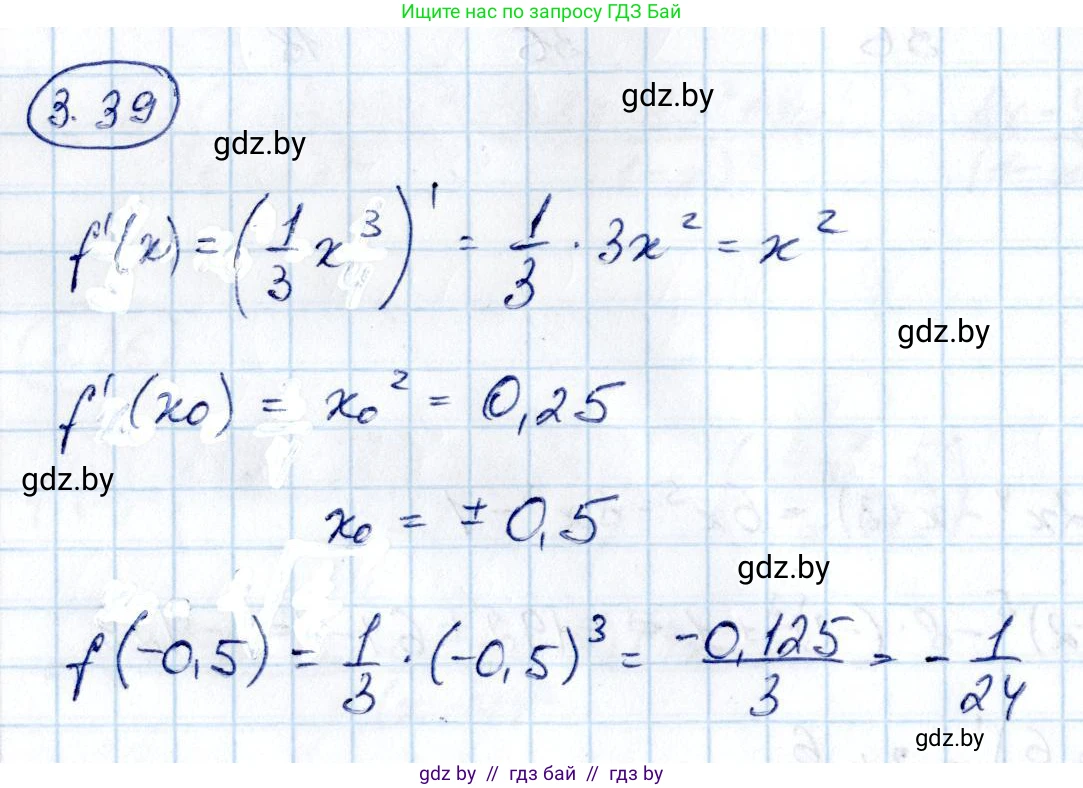 Ищите нас по запросу ГДЗ Бай
3.39
gdz.by
gdz.by
f'(x) = (1/3 x^3)' = 1/3 · 3x^2 = x^2
gdz.by
f'(x₀) = x₀^2 = 0,25
gdz.by
x₀ = ± 0,5
gdz.by
f(-0,5) = 1/3 · (-0,5)^3 = -0,125/3 = - 1/24
gdz.by
gdz by // гдз бай // гдз by